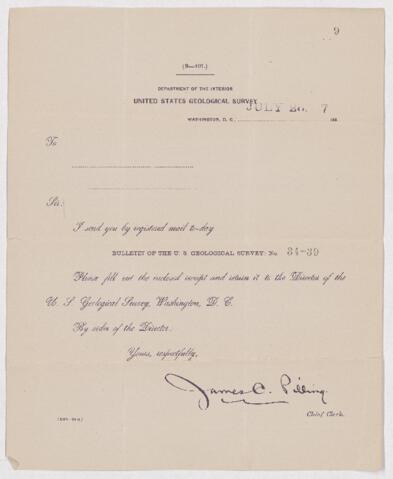 9
(9—407.)
DEPARTMENT OF THE INTERIOR
UNITED STATES GEOLOGICAL SURVEY
JULY 20 7
WASHINGTON, D. C., 188
To
Sir:
I send you by registered mail to-day
BULLETIN OF THE U. S. GEOLOGICAL SURVEY: No. 34-39
Please fill out the inclosed receipt and return it to the Director of the
U. S. Geological Survey, Washington, D. C.
By order of the Director.
Yours, respectfully,
James C. Pilling
Chief Clerk.